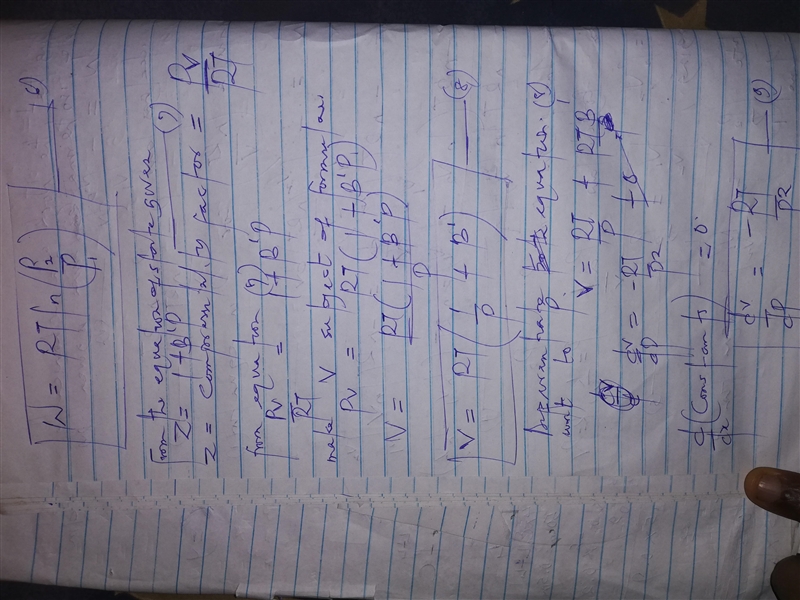 W = RT ln (P2/P1) ——— (6)
from the equation of state given
Z = 1 + B'P ——— (7)
Z = compressibility factor = PV/RT
from equation (7)
PV/RT = 1 + B'P
make V subject of formula
PV = RT(1 + B'P)
V = RT(1 + B'P)/P
V = RT(1/P + B') ——— (8)
equation (8)
wrt to P
V = RT/P + RTB'
dV/dP = -RT/P2 + 0
d/dx (Constants) = 0
dV/dP = -RT/P2 ——— (9)